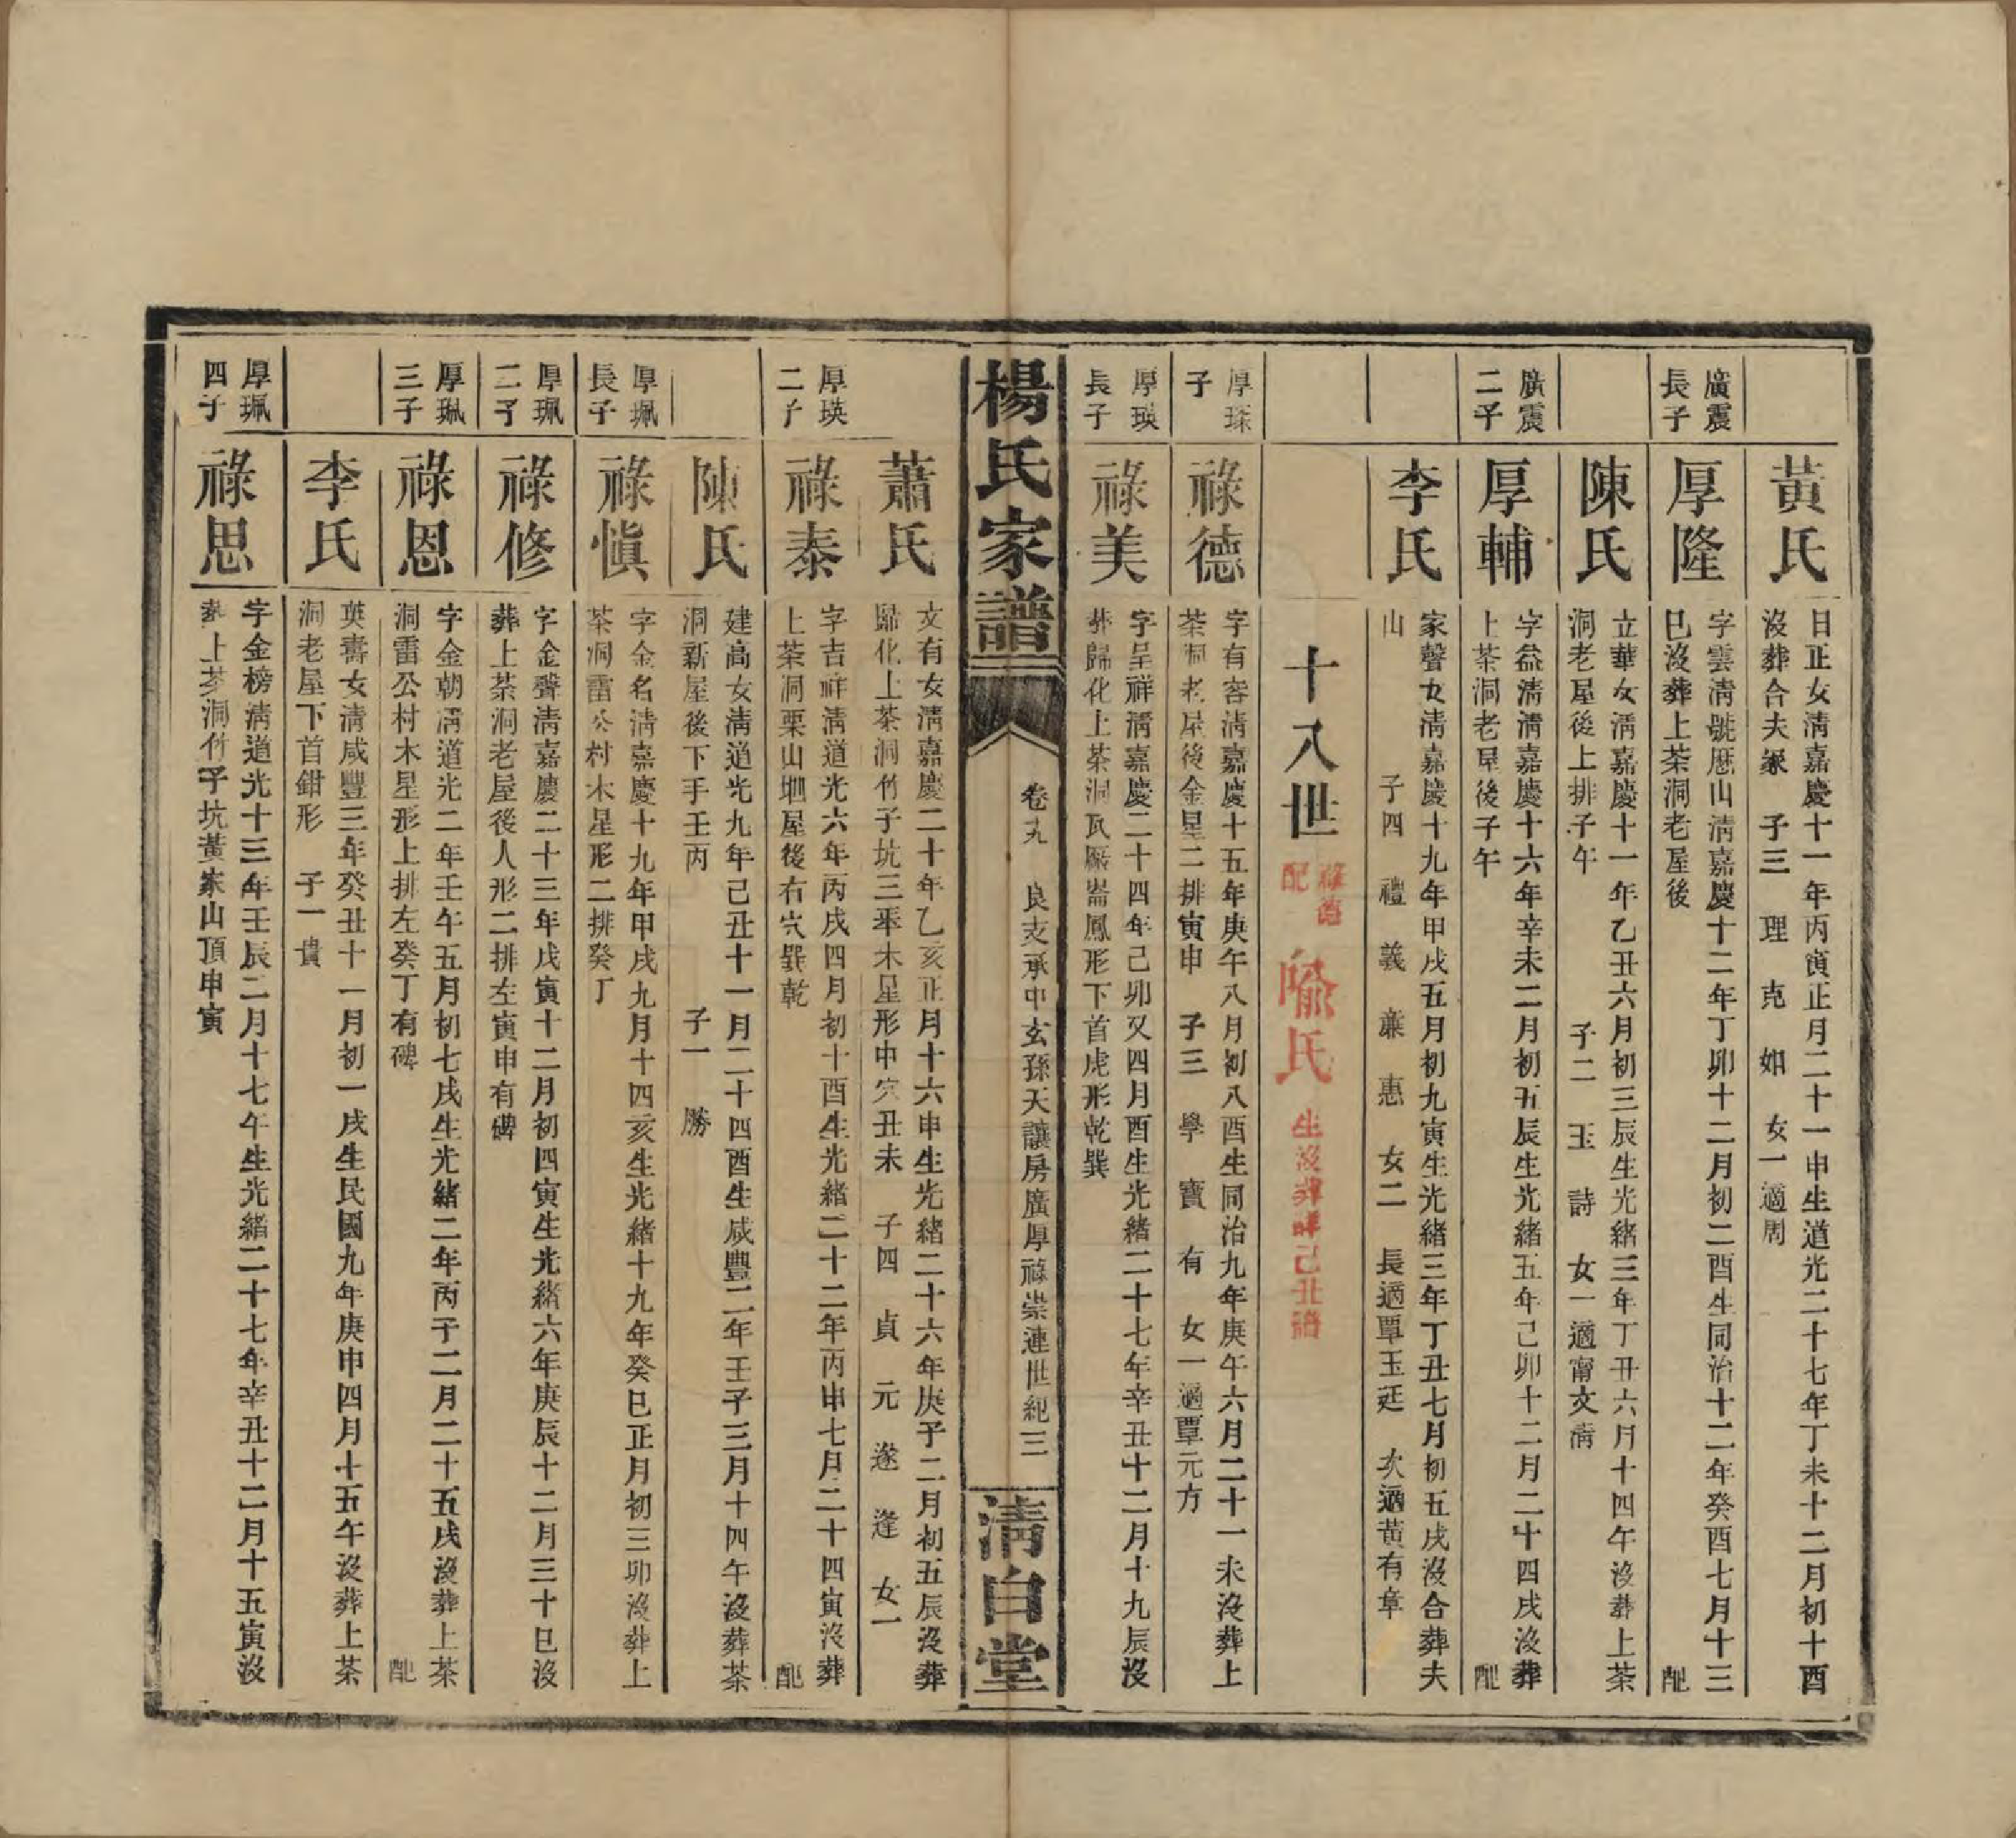 黃氏
日正女淸嘉慶十一年丙寅正月二十一申生道光二十七年丁未十二月初十酉
沒葬合夫冢　子三　理　克　如　女一適周
廣震
長子
厚隆
字雲淸號厯山淸嘉慶十二年丁卯十二月初二酉生同治十二年癸酉七月十三
巳沒葬上茶洞老屋後　配
陳氏
立華女淸嘉慶十一年乙丑六月初三辰生光緒三年丁丑六月十四午沒葬上茶
洞老屋後上排子午　子二　玉　詩　女一適甯文淸
廣震
二子
厚輔
字益淸淸嘉慶十六年辛未二月初五辰生光緒五年己卯十二月二十四戌沒葬
上茶洞老屋後子午　配
李氏
家聲女淸嘉慶十九年甲戌五月初九寅生光緒三年丁丑七月初五戌沒合葬夫
山　子四　禮　義　廉　惠　女二　長適覃玉廷　次適黃有章
十八世
祿德
配
喩氏
生沒葬詳己丑譜
厚琛
子
祿德
字有容淸嘉慶十五年庚午八月初八酉生同治九年庚午六月二十一未沒葬上
茶洞老屋後金星二排寅申　子三　學　寶　有　女一適覃元方
厚瑛
長子
祿美
字呈祥淸嘉慶二十四年己卯又四月酉生光緒二十七年辛丑十二月十九辰沒
葬歸化上茶洞瓦廠崙鳳形下首虎形乾巽
楊氏家譜
卷九　良支承中玄孫天讓房廣厚祿崇連世紀三
淸白堂
蕭氏
文有女淸嘉慶二十年乙亥正月十六申生光緒二十六年庚子二月初五辰沒葬
歸化上茶洞竹子坑三聖木星形中穴丑未　子四　貞　元　遂　逢　女一
厚瑛
二子
祿泰
字吉祥淸道光六年丙戌四月初十酉生光緒二十二年丙申七月二十四寅沒葬
上茶洞栗山坳屋後右穴巽乾　配
陳氏
建高女淸道光九年己丑十一月二十四酉生咸豐二年壬子三月十四午沒葬茶
洞新屋後下手壬丙　子一　勝
厚珮
長子
祿愼
字金名淸嘉慶十九年甲戌九月十四亥生光緒十九年癸巳正月初三卯沒葬上
茶洞雷公村木星形二排癸丁
厚珮
二子
祿修
字金聲淸嘉慶二十三年戊寅十二月初四寅生光緒六年庚辰十二月三十巳沒
葬上茶洞老屋後人形二排左寅申有碑
厚珮
三子
祿恩
字金朝淸道光二年壬午五月初七戌生光緒二年丙子二月二十五戌沒葬上茶
洞雷公村木星形上排左癸丁有碑　配
李氏
英壽女淸咸豐三年癸丑十一月初一戌生民國九年庚申四月十五午沒葬上茶
洞老屋下首鉗形　子一　貴
厚珮
四子
祿思
字金榜淸道光十三年壬辰二月十七午生光緒二十七年辛丑十二月十五寅沒
葬上茶洞竹子坑黃家山頂申寅